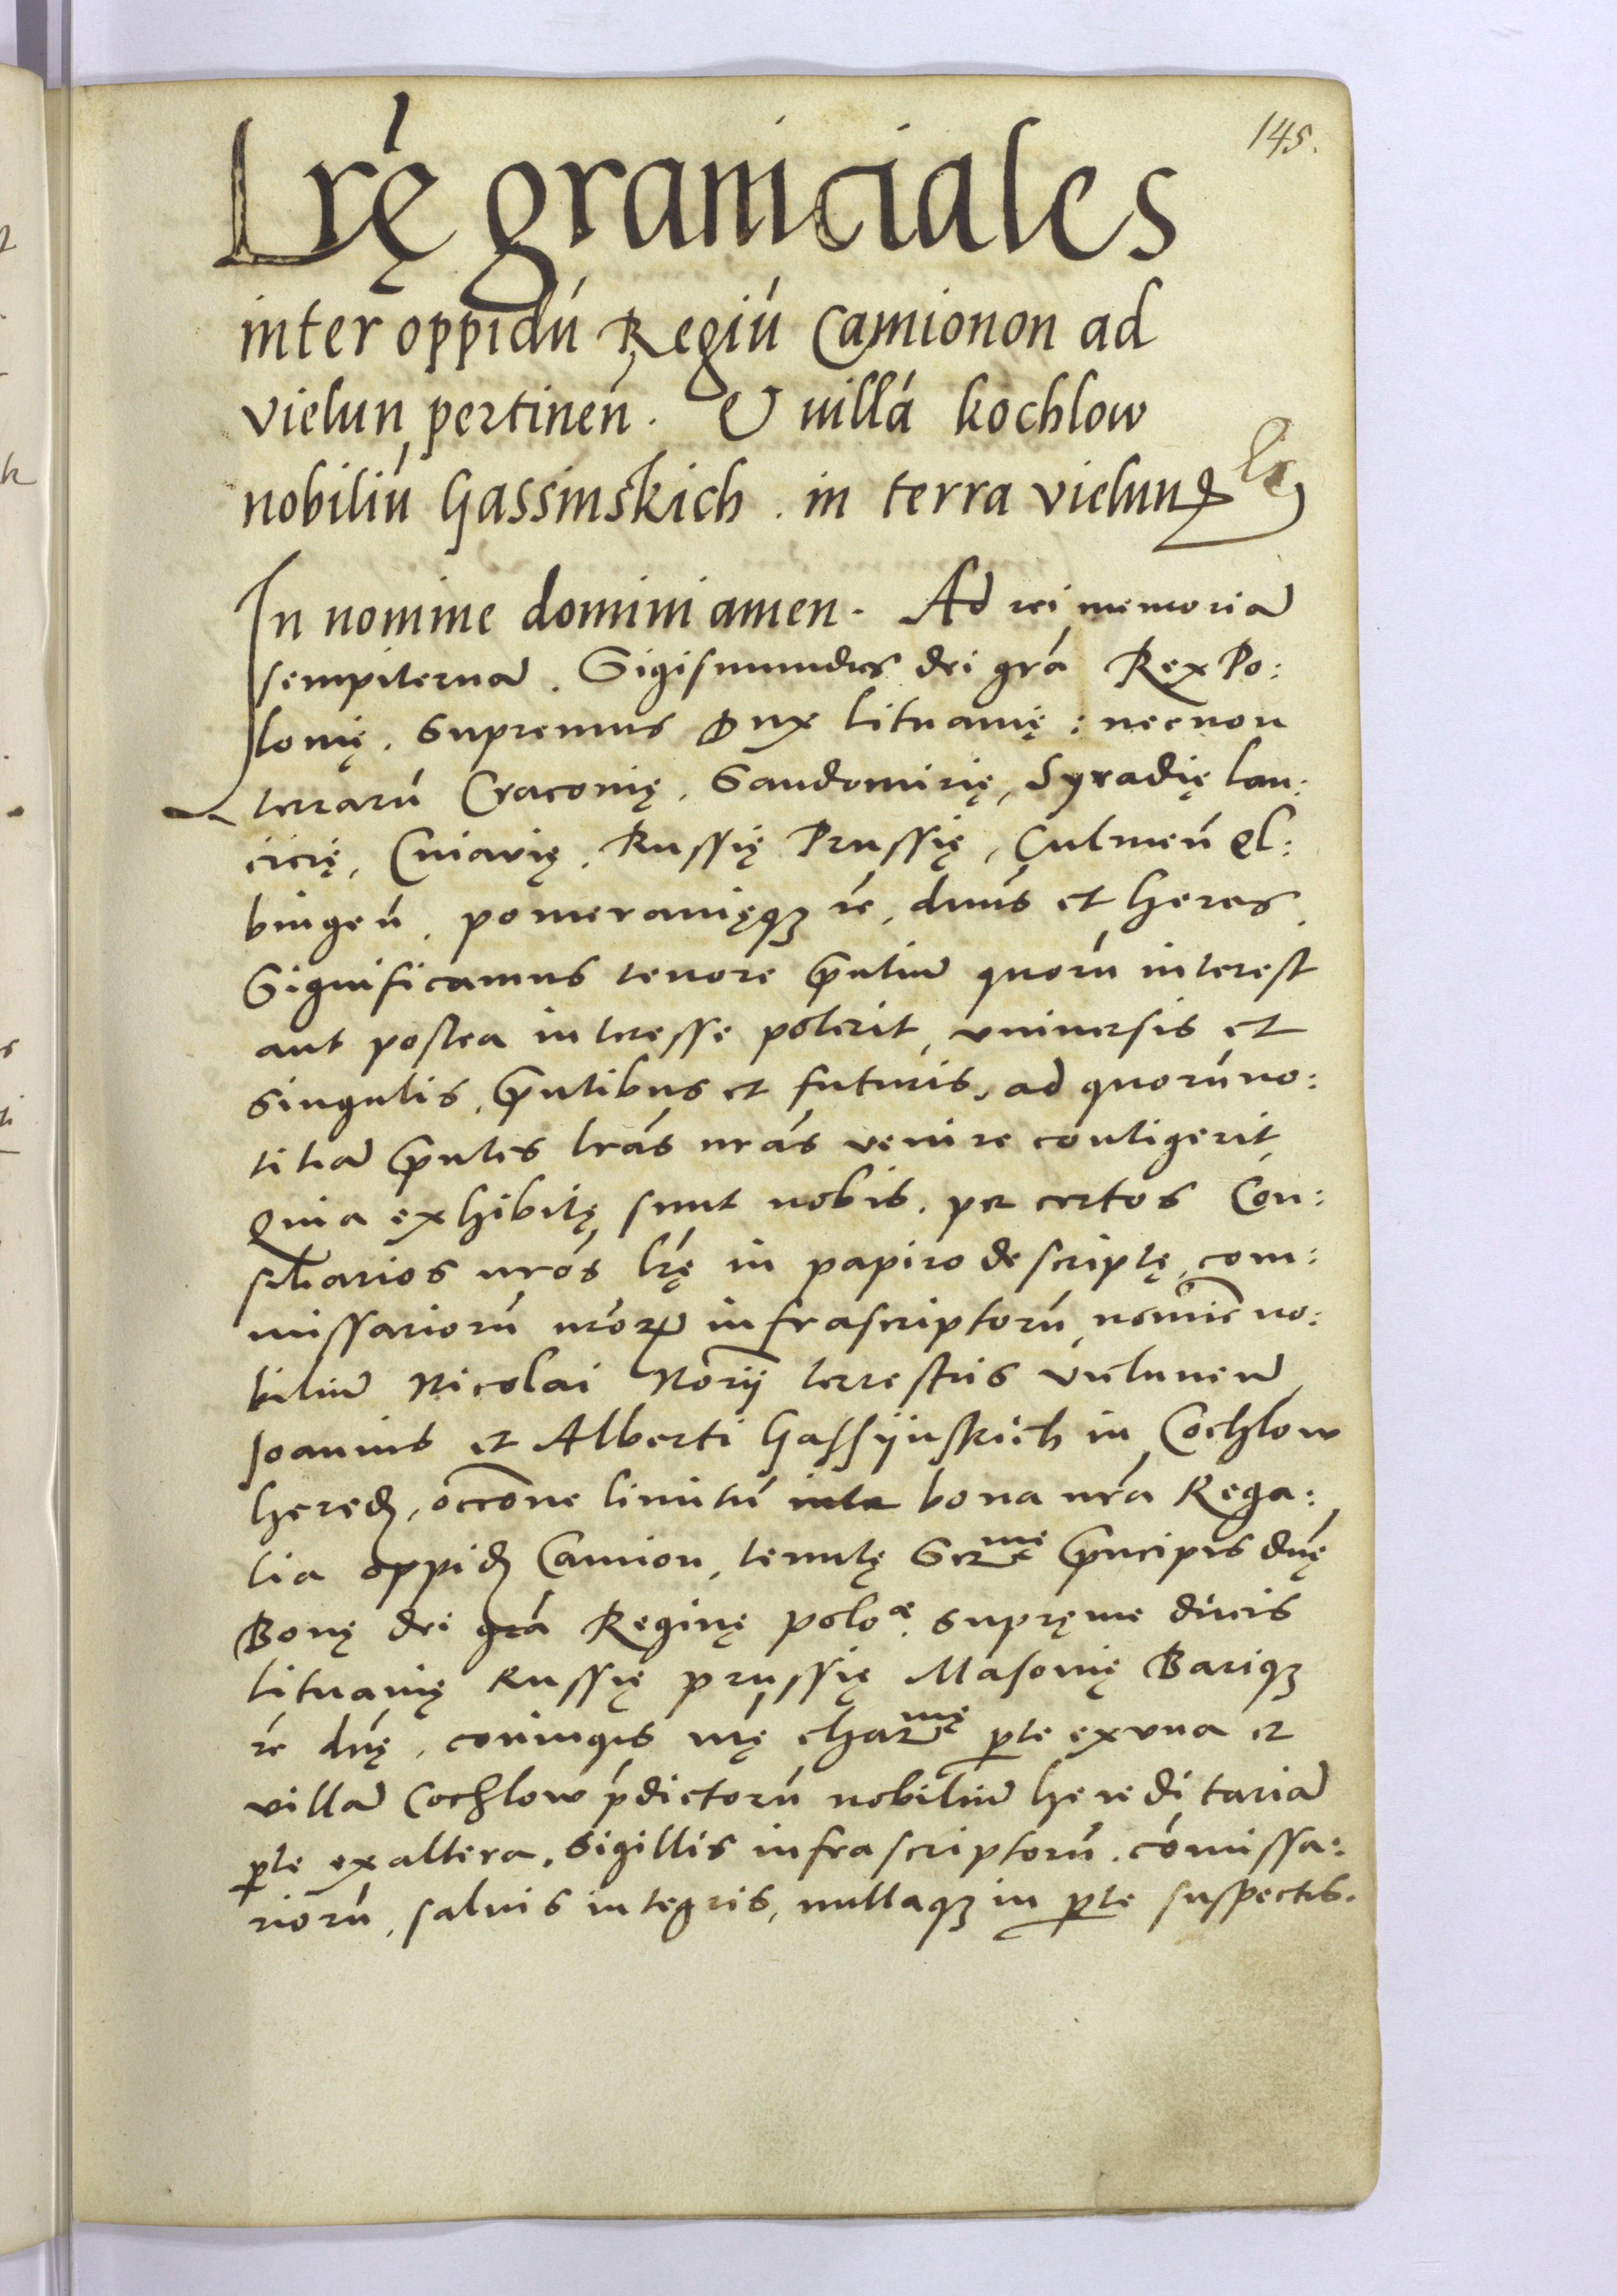 145.
Lrę graniciales
inter oppidū Regiū Camionon ad
vielun pertineń. Et villā kochlow
nobiliū Gassinskich. in terra vielun
In nomine domini amen. Ad rei memoriam
sempiternam. Sigismundus dei grā Rex Po:
lonię. Supremus Dux lituanię: necnon
terrarū Cracovię, Sandomirię, Syradię lan:
cicię, Cuiavię. Russię Prussię, Culmeń El:
bingeń. pomeranięqꝫ rē, dnus et heres.
Significamus tenore pn̄tium quorū interest
aut postea interesse poterit, vniversis et
singulis, pn̄tibus et futuris, ad quorū no:
titiam pn̄tes lrās nrās venire contigerit
Quia exhibitę sunt nobis. per certos Con:
siliarios nrōs lrę in papiro descriptę, com:
missariorū nrōꝝ infrascriptorū, nōmine no:
bilium Nicolai Norij terrestris vielunen̄
Joannis et Alberti Gassijnskich in Cochlow
hered, occōne limitū inter bona nrā Rega:
lia oppid Camion, tenutę Serᵐᵉ Principis dnę
Bonę dei grā Reginę poloᵉ. supręme ducis
lituanię Russię prussię Masovię Bariqꝫ
rē dnę, coniugis nrę charᵐᵉ pte ex vna et
villam Cochlow p̄dictorū nobilium hereditariam
pte ex altera. Sigillis infrascriptorū. cōmissa:
riorū, salvis integris, nullaqꝫ in pte suspectis.